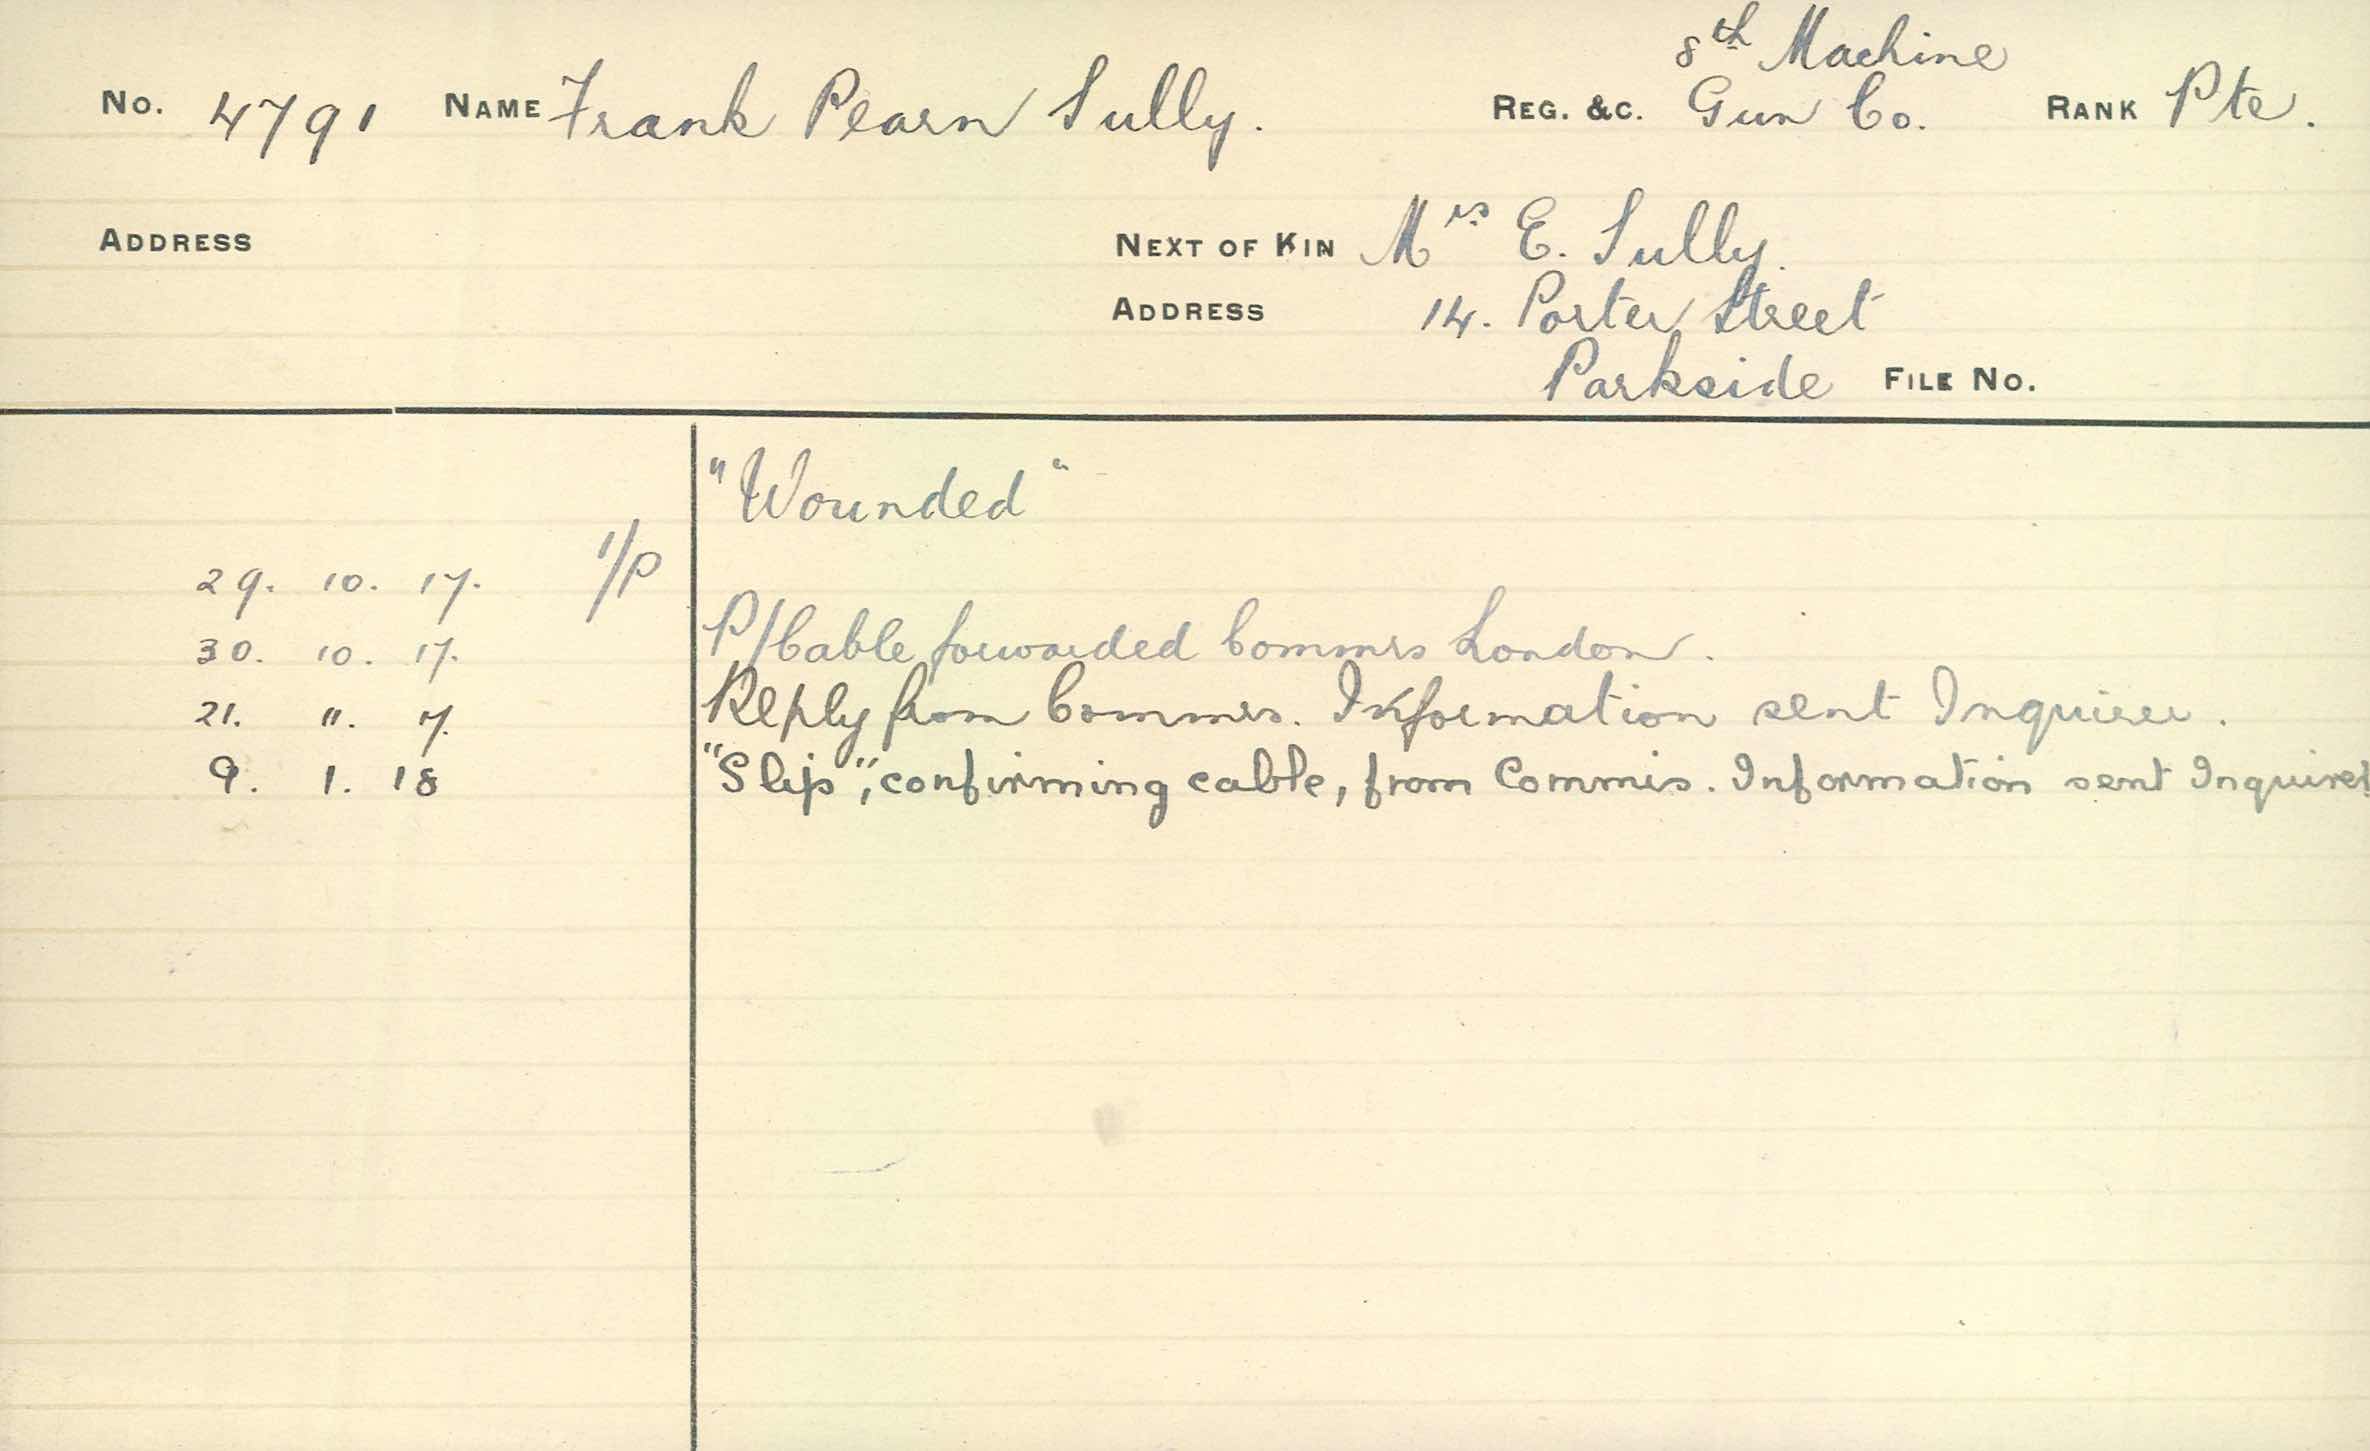 8th Machine
No. 4791 NAME Frank Pearn Sully. REG. &C. Gun Co. RANK Pte.
ADDRESS NEXT OF KIN Mrs E. Sully.
ADDRESS 14. Porter Street
Parkside FILE No.
"Wounded"
29. 10. 17. 1/P
30. 10. 17. P/Cable forwarded Commrs London.
21. 11. 17. Reply from Commrs. Information sent Inquirer.
9. 1. 18 "Slip", confirming cable, from Commis. Information sent Inquirer